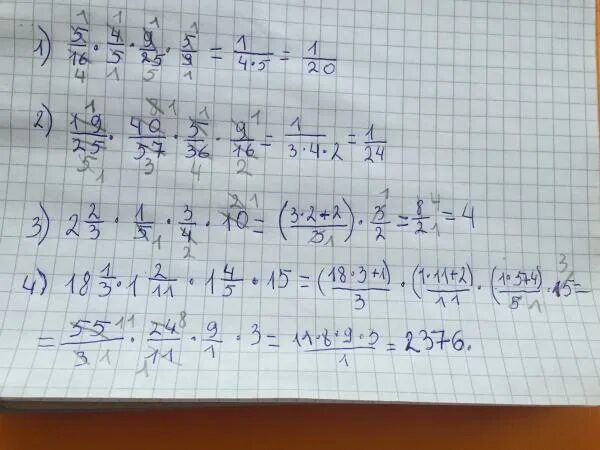 1) 5/16 · 4/5 · 9/25 · 5/9 = 1/(4·5) = 1/20
2) 19/25 · 40/57 · 5/36 · 9/16 = 1/(3·4·2) = 1/24
3) 2 2/3 · 1/5 · 3/4 · 10 = ((3·2+2)/3) · 3/2 = 8/2 = 4
4) 18 1/3 · 1 2/11 · 1 4/5 · 15 = (18·3+1)/3 · (1·11+2)/11 · (1·5+4)/5 · 15 =
= 55/3 · 24/11 · 9/1 · 3 = 11·8·9·3/1 = 2376.